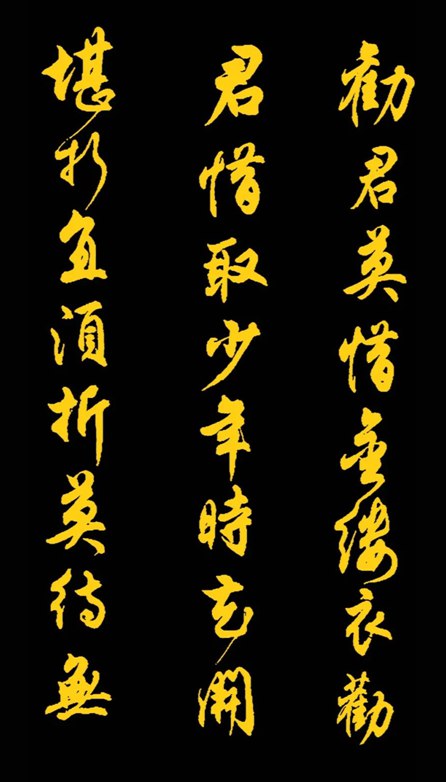 勸君莫惜金縷衣勸
君惜取少年時花開
堪折直須折莫待無